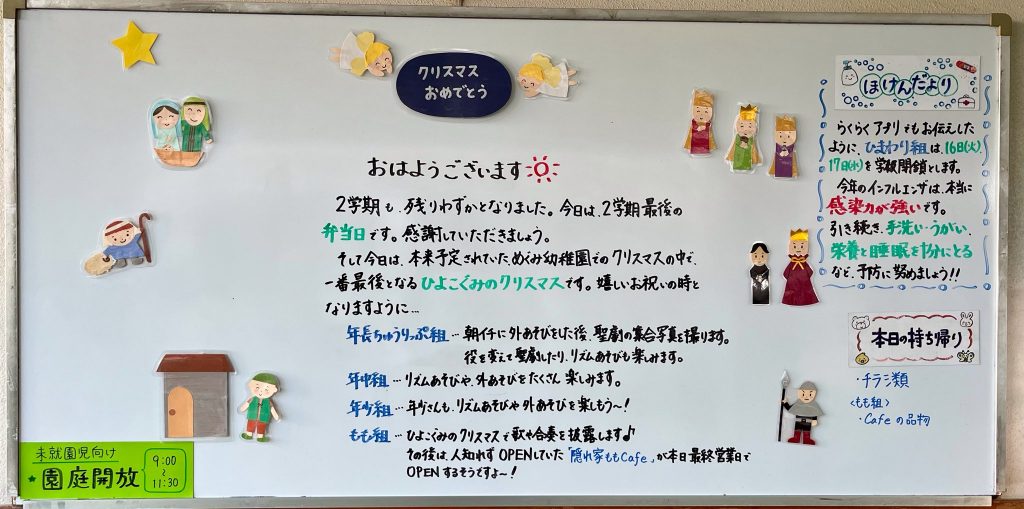 クリスマス
おめでとう
おはようございます
2学期も、残りわずかとなりました。今日は、2学期最後の
弁当日です。感謝していただきましょう。
そして今日は、本来予定されていためぐみ幼稚園でのクリスマスの中で、
一番最後となるひよこぐみのクリスマスです。嬉しいお祝いの時と
なりますように…
年長ちゅうりっぷ組…朝イチに外あそびをした後、聖劇の集合写真を撮ります。
役を変えて聖劇したり、リズムあそびも楽しみます。
年中組…リズムあそびや、外あそびをたくさん楽しみます。
年少組…年少さんも、リズムあそびや外あそびを楽しもう〜！
もも組…ひよこぐみのクリスマスで歌や合奏を披露します♪
その後は、人知れずOPENしていた「隠れ家ももCafe」が本日最終営業日で
OPENするそうですよ〜！
未就園児向け
園庭開放
9:00
〜
11:30
ほけんだより
らくらくアプリでもお伝えした
ように、ひまわり組は、16日(火)
17日(水)を学級閉鎖とします。
今年のインフルエンザは、本当に
感染力が強いです。
引き続き、手洗い・うがい、
栄養と睡眠を十分にとる
など、予防に努めましょう!!
本日の持ち帰り
・チラシ類
〈もも組〉
・Cafeの品物